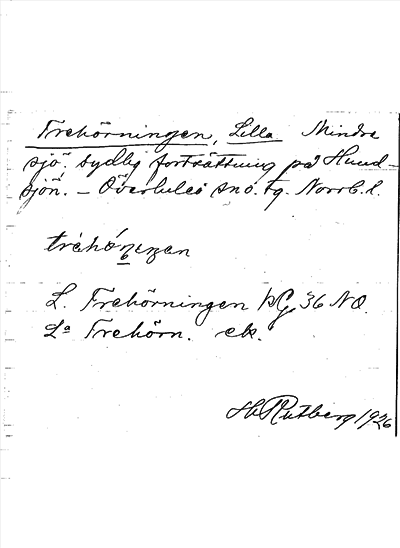 Trehörningen, Lilla Mindre
sjö. sydlig fortsättning på Hund-
sjön. – Överluleå sn o. tg. Norrb. l.
L. Trehörningen KG, 36 NO.
La Trehörn. ek.
H. Rutberg 1926